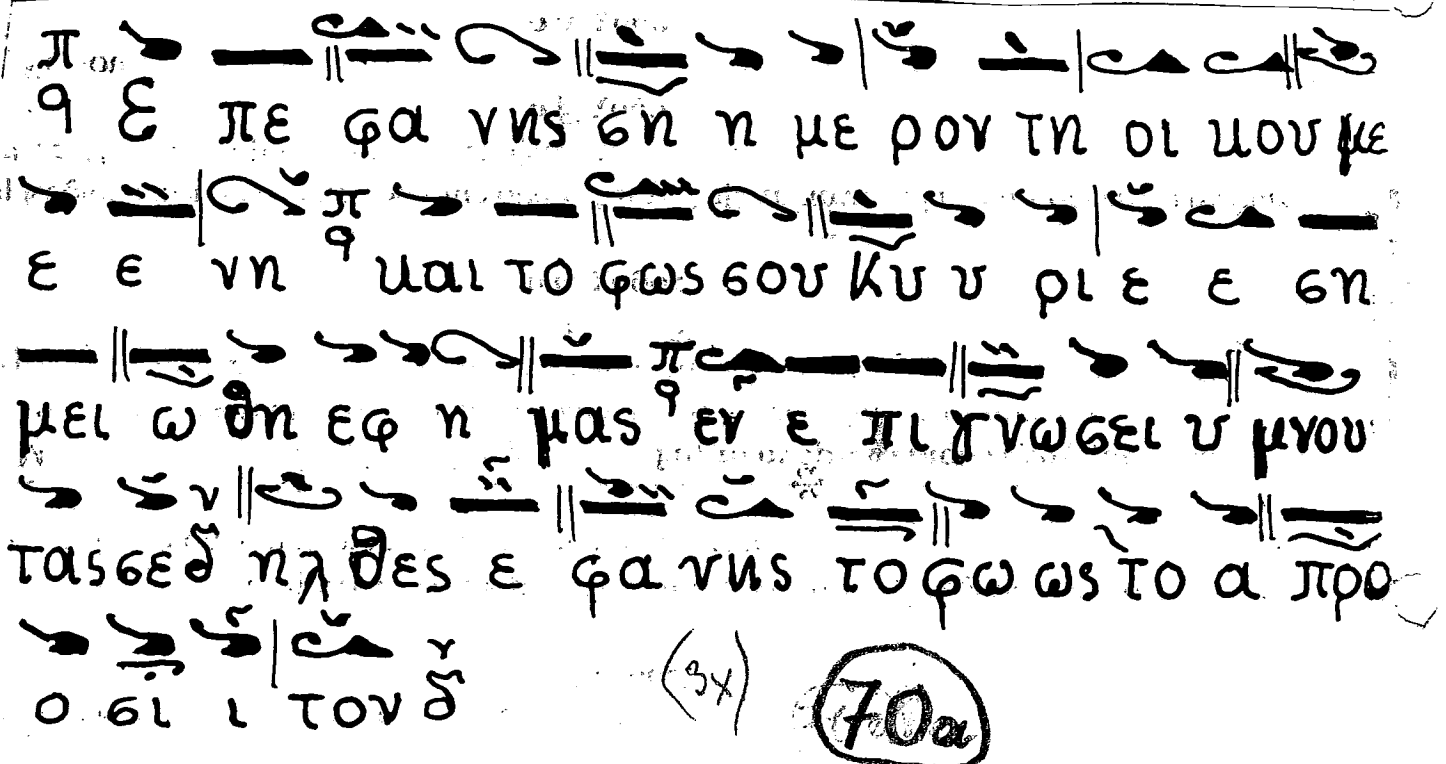 π
q Ε πε φα νης ση η με ρον τη οι κου με
π
ε ε νη q και το φως σου Κυ υ ρι ε ε ση
π
μει ω θη εφ η μας q εν ε πι γνω σει υ μνου
ν
τας σε δ ηλ θες ε φα νης το φω ως το α προ
ν
ο σι ι τον δ
(3x) 70α